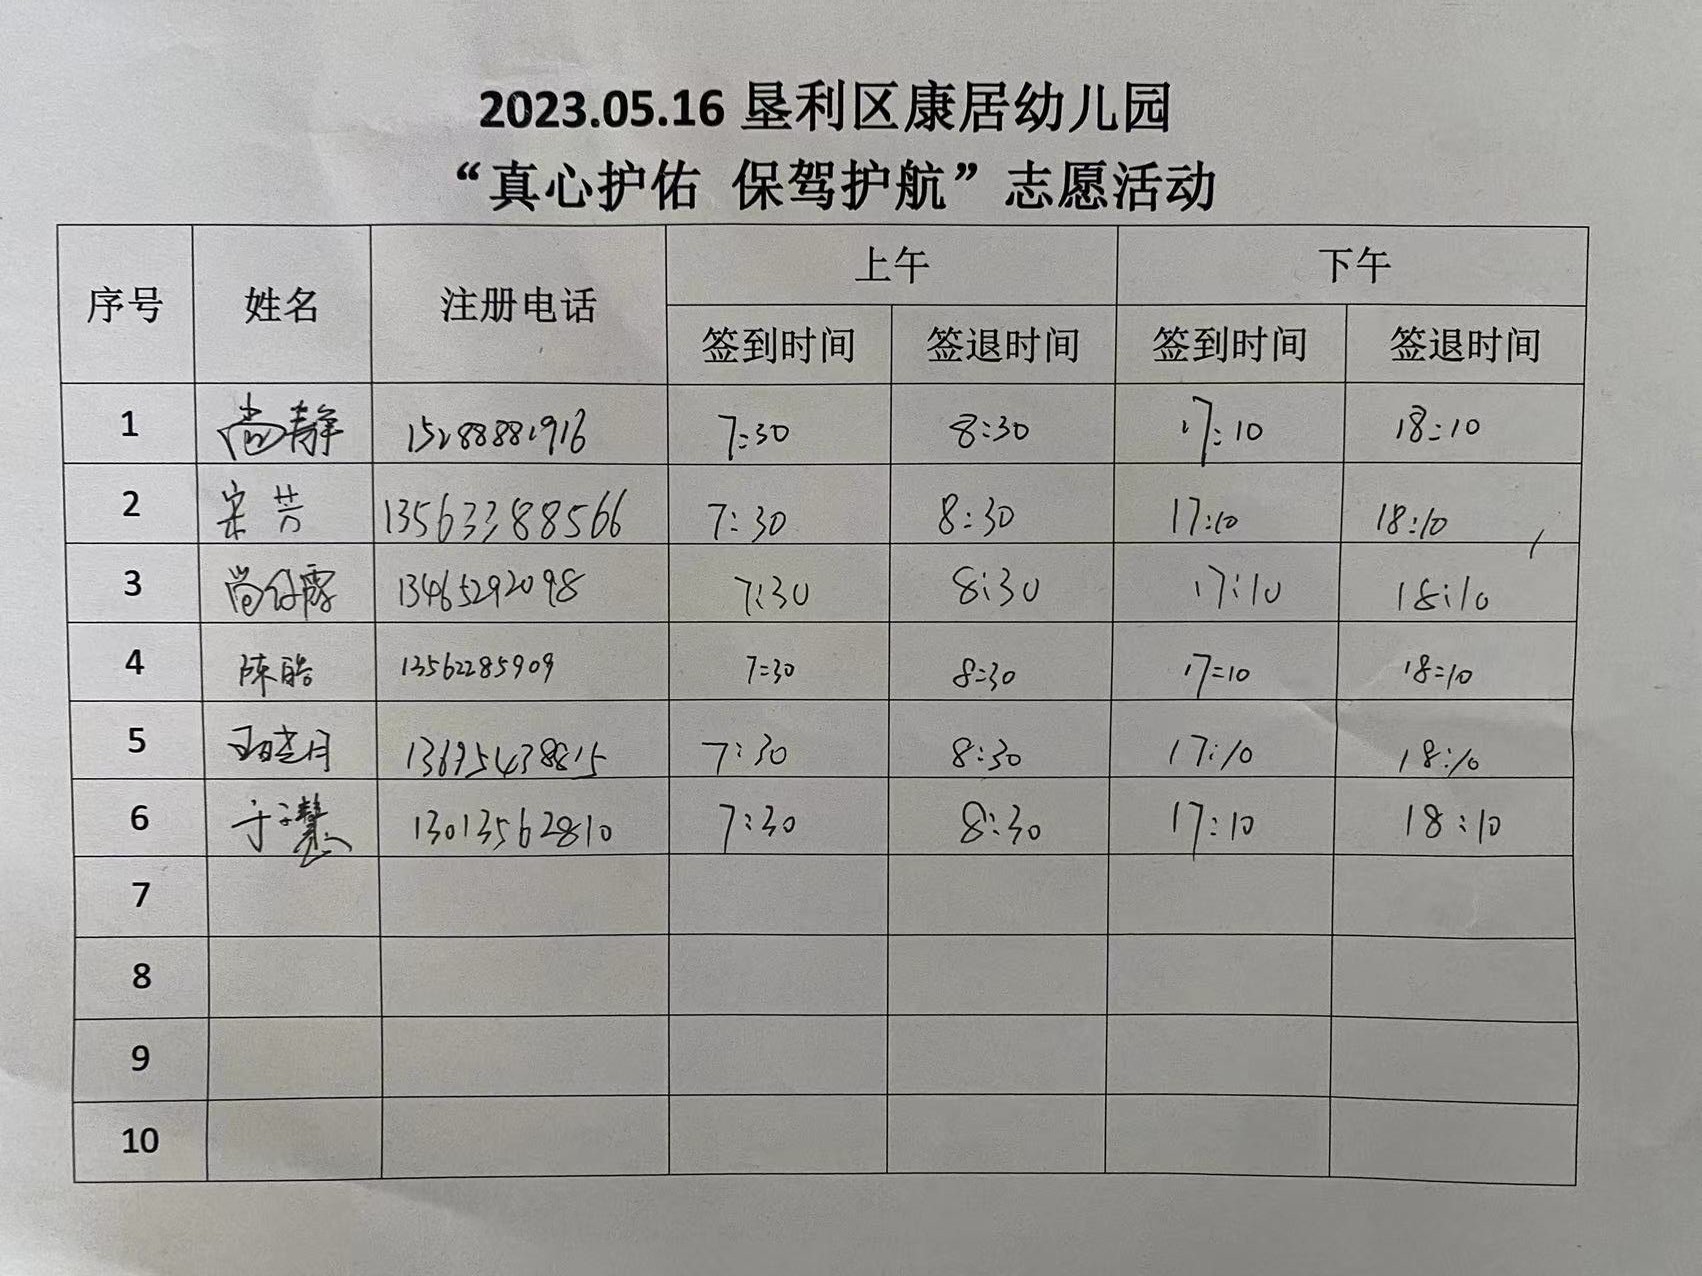 2023.05.16 垦利区康居幼儿园
“真心护佑 保驾护航”志愿活动
序号 姓名 注册电话 上午 下午
签到时间 签退时间 签到时间 签退时间
1 尚静 15288881916 7:30 8:30 17:10 18:10
2 宋芳 13563388566 7:30 8:30 17:10 18:10
3 13465292098 7:30 8:30 17:10 18:10
4 陈皓 13562285909 7:30 8:30 17:10 18:10
5 13695438815 7:30 8:30 17:10 18:10
6 于子慧 13013562810 7:30 8:30 17:10 18:10
7
8
9
10